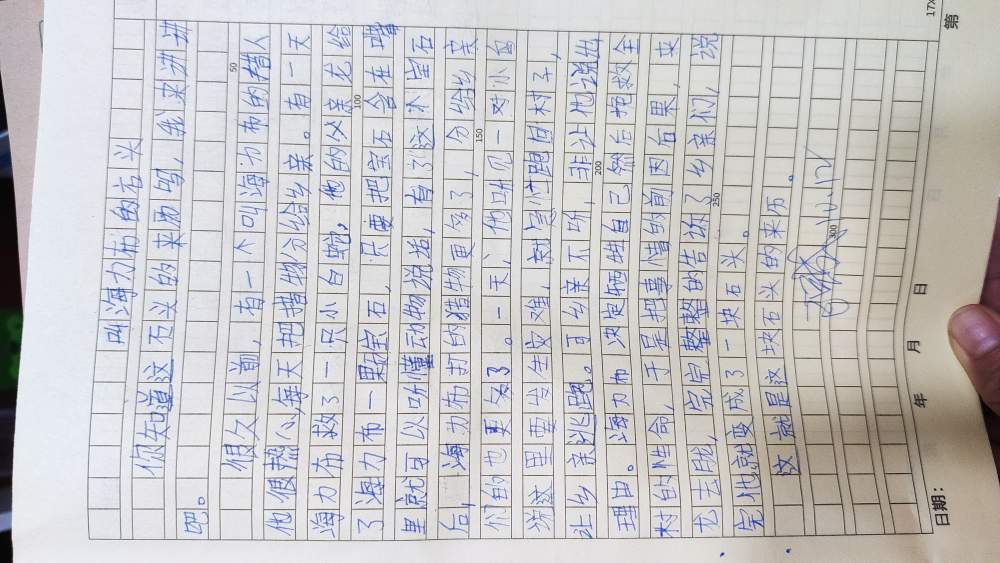 叫海力布的石头
你知道这石头的来历吗，我来讲讲
吧。
很久以前，有一个叫海力布的猎人
他很热心，每天把猎物分给乡亲。有一天
海力布救了一只小白蛇，他的父亲龙给
了海力布一颗宝石，只要把宝石含在嘴
里就可以听懂动物说话，有了这个宝石
后，海力布打的猎物更多了，分给乡亲
们的也更多了。一天，他听见一对小鸟
说这里要发生灾难，就急忙跑回村子，
让乡亲逃跑。可乡亲不听，非让他说出
理由。海力布决定牺牲自己然后拯救全
村的性命，于是把事情的前因后果，
龙去脉，完完整整的告诉了乡亲们，说
完他就变成了一块石头。
这就是这块石头的来历。
50
100
150
200
250
300
日期：
年
月
日
第
17X